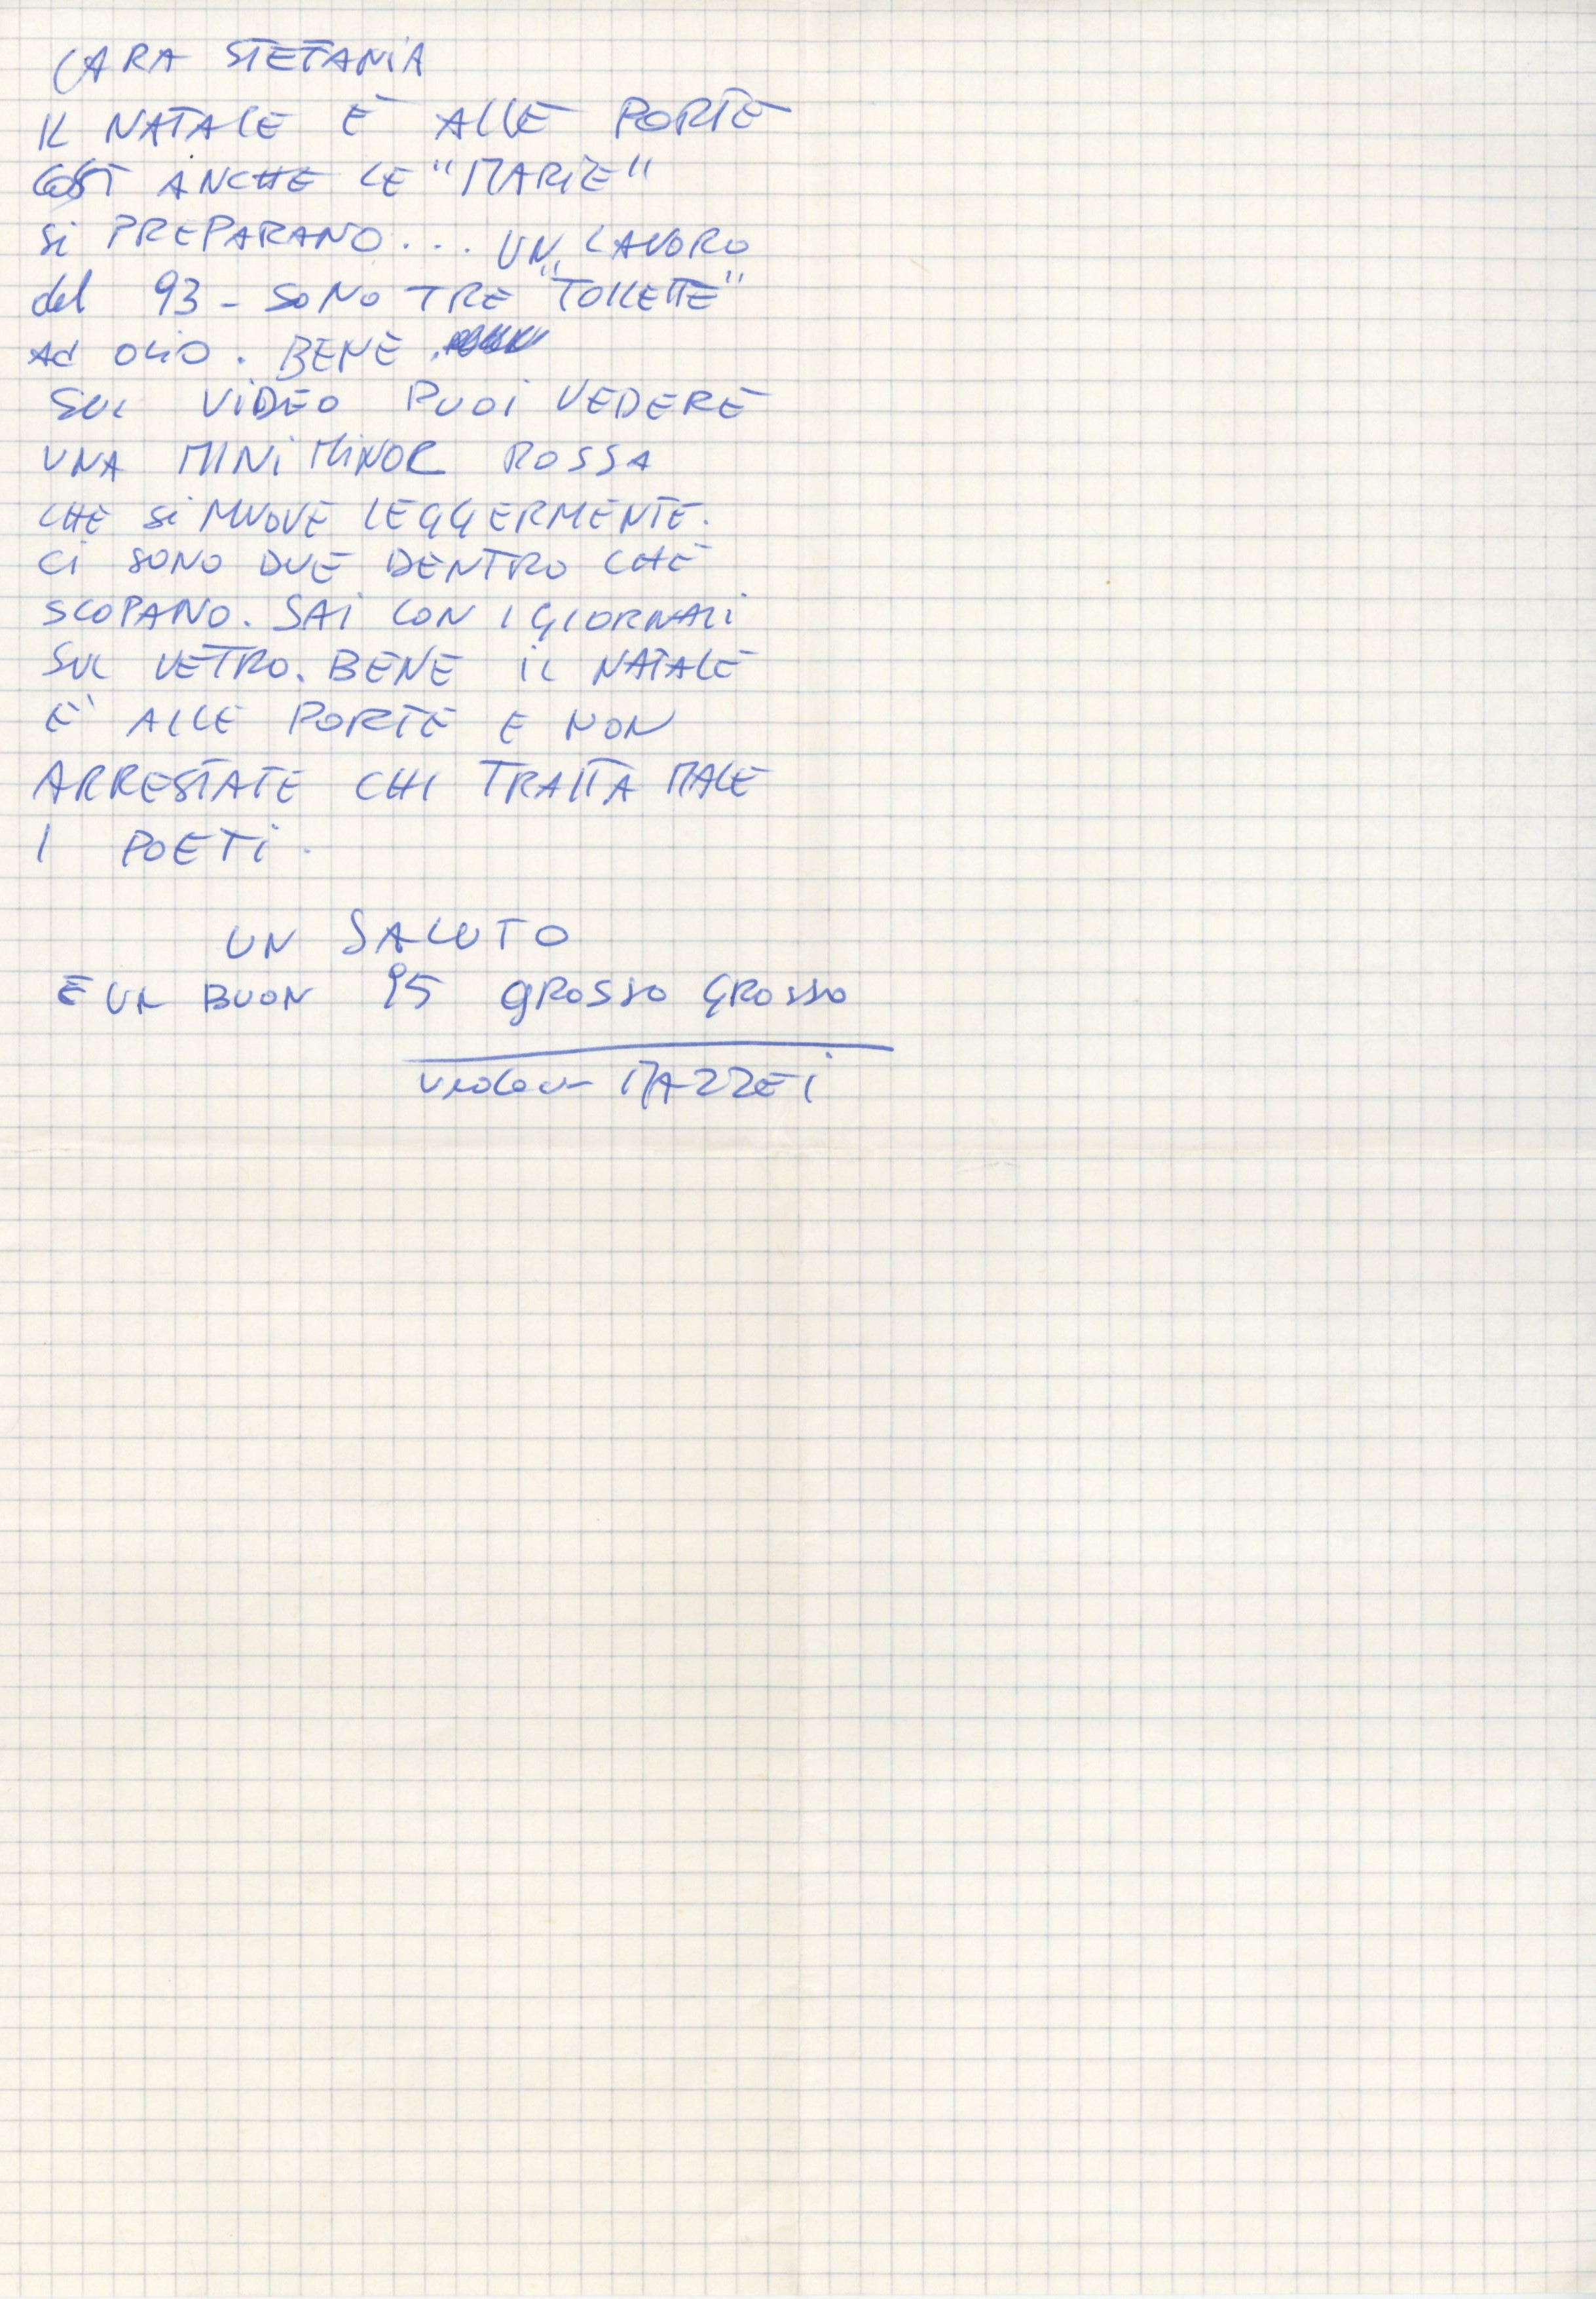 CARA STEFANIA
IL NATALE È ALLE PORTE
COSÌ ANCHE LE "MARIE"
Si PREPARANO... UN LAVORO
del 93 - SONO TRE "TOILETTE"
Ad OLIO. BENE.
SUL VIDEO PUOI VEDERE
UNA MINI MINOR ROSSA
CHE Si MUOVE LEGGERMENTE.
Ci SONO DUE DENTRO CHE
SCOPANO. SAI CON I GIORNALI
SUL VETRO. BENE IL NATALE
E' ALLE PORTE E NON
ARRESTATE CHI TRATTA MALE
I POETI.
UN SALUTO
E UN BUON 95 GROSSO GROSSO
MAZZEI